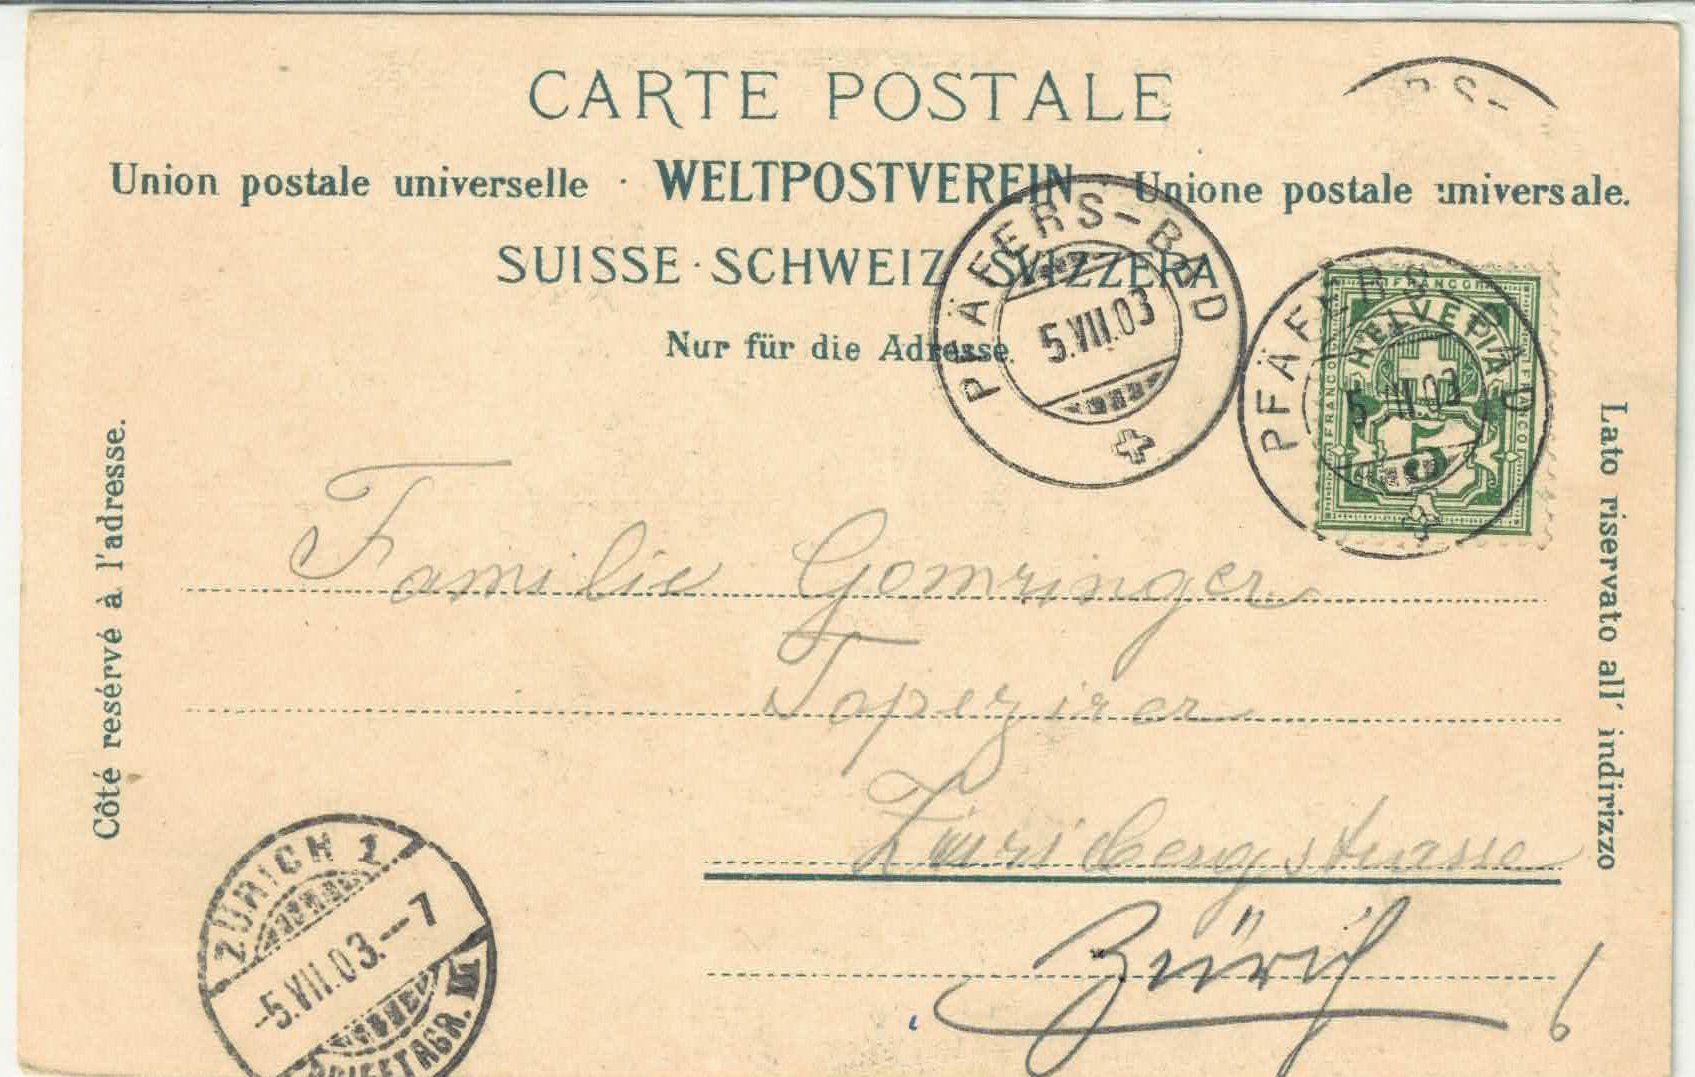 CARTE POSTALE
Union postale universelle · WELTPOSTVEREIN · Unione postale universale.
SUISSE · SCHWEIZ · SVIZZERA
Nur für die Adresse.
PFÄFERS-BAD
5.VII.03
PFÄFERS-BAD
5.VII.03
FRANCO
HELVETIA
5
RS-
Côté resérvé à l'adresse.
Lato riservato all' indirizzo
Familie Gomringer
Tapezirer
Zürichbergstrasse
Zürich
ZÜRICH 1
-5.VII.03.--7
BRIEFTRAGR.